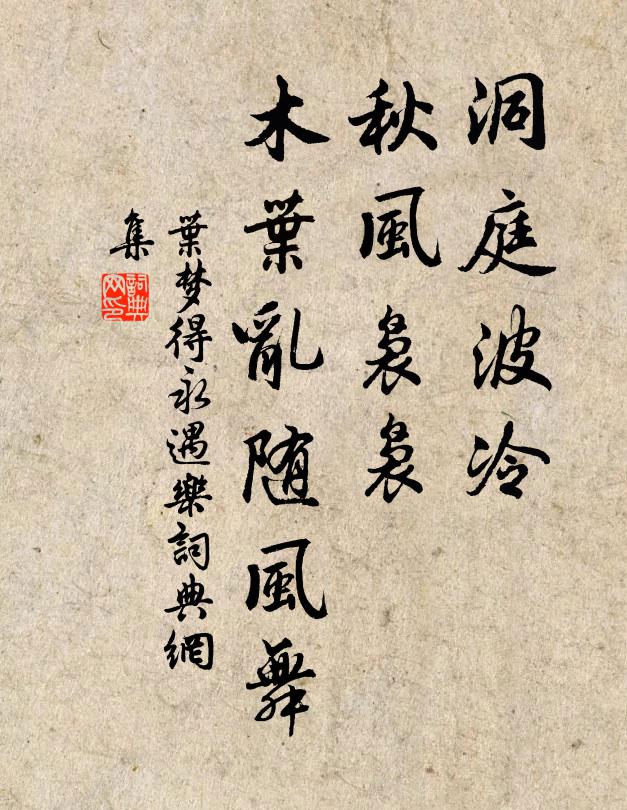 洞庭波冷
秋風裊裊
木葉亂随風舞
葉梦得永遇樂詞典網
集
詞典
网印